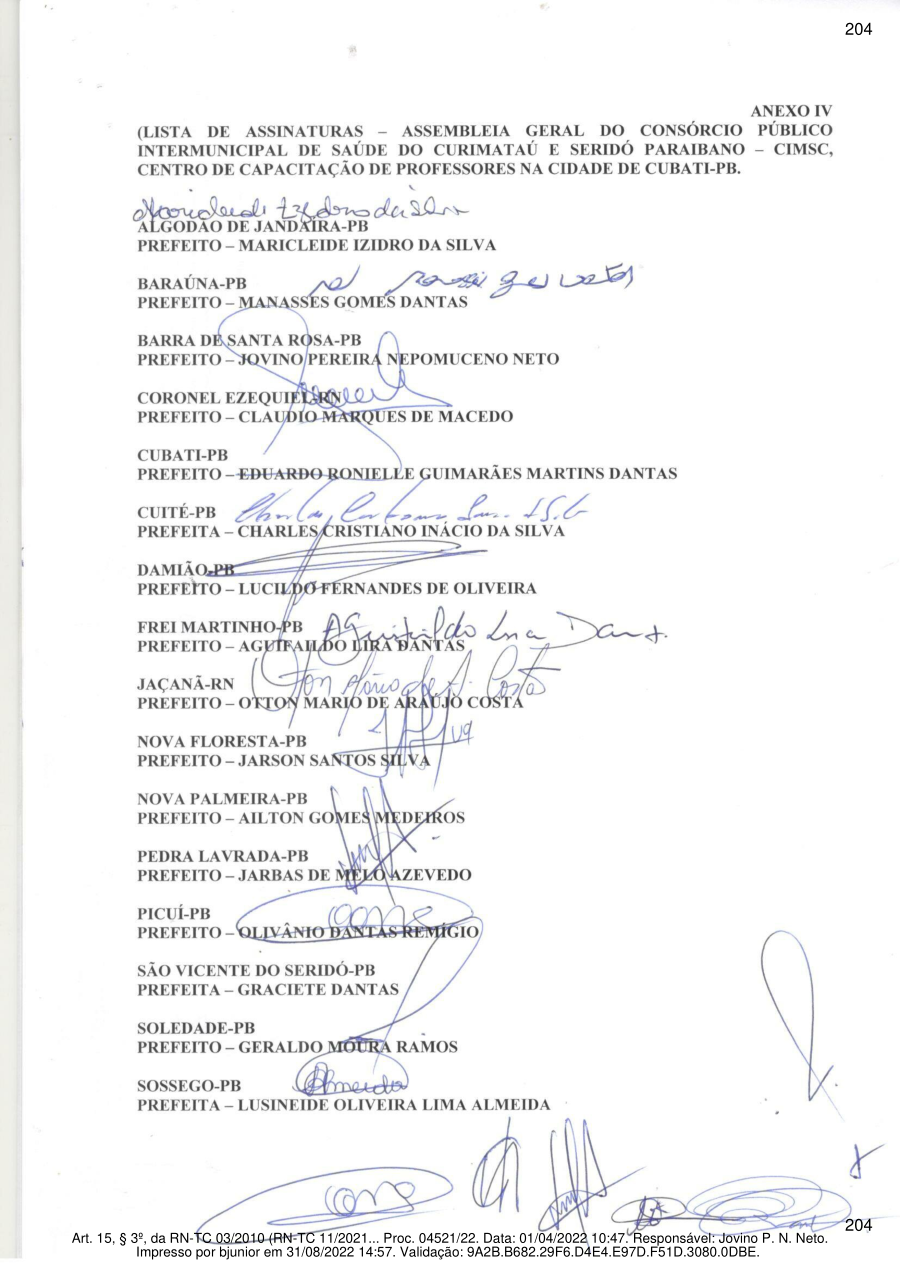 204
ANEXO IV
(LISTA DE ASSINATURAS – ASSEMBLEIA GERAL DO CONSÓRCIO PÚBLICO
INTERMUNICIPAL DE SAÚDE DO CURIMATAÚ E SERIDÓ PARAIBANO – CIMSC,
CENTRO DE CAPACITAÇÃO DE PROFESSORES NA CIDADE DE CUBATI-PB.
Maricleide Izidro da Silva
ALGODÃO DE JANDAÍRA-PB
PREFEITO – MARICLEIDE IZIDRO DA SILVA
BARAÚNA-PB
PREFEITO – MANASSÉS GOMES DANTAS
BARRA DE SANTA ROSA-PB
PREFEITO – JOVINO PEREIRA NEPOMUCENO NETO
CORONEL EZEQUIEL-RN
PREFEITO – CLAUDIO MARQUES DE MACEDO
CUBATI-PB
PREFEITO – EDUARDO RONIELLE GUIMARÃES MARTINS DANTAS
CUITÉ-PB
PREFEITA – CHARLES CRISTIANO INÁCIO DA SILVA
DAMIÃO-PB
PREFEITO – LUCILDO FERNANDES DE OLIVEIRA
FREI MARTINHO-PB
PREFEITO – AGUIFAILDO LIRA DANTAS
JAÇANÃ-RN
PREFEITO – OTTON MARIO DE ARAÚJO COSTA
NOVA FLORESTA-PB
PREFEITO – JARSON SANTOS SILVA
NOVA PALMEIRA-PB
PREFEITO – AILTON GOMES MEDEIROS
PEDRA LAVRADA-PB
PREFEITO – JARBAS DE MELO AZEVEDO
PICUÍ-PB
PREFEITO – OLIVÂNIO DANTAS REMÍGIO
SÃO VICENTE DO SERIDÓ-PB
PREFEITA – GRACIETE DANTAS
SOLEDADE-PB
PREFEITO – GERALDO MOURA RAMOS
SOSSEGO-PB
Almeida
PREFEITA – LUSINEIDE OLIVEIRA LIMA ALMEIDA
204
Art. 15, § 3º, da RN-TC 03/2010 (RN-TC 11/2021... Proc. 04521/22. Data: 01/04/2022 10:47. Responsável: Jovino P. N. Neto.
Impresso por bjunior em 31/08/2022 14:57. Validação: 9A2B.B682.29F6.D4E4.E97D.F51D.3080.0DBE.